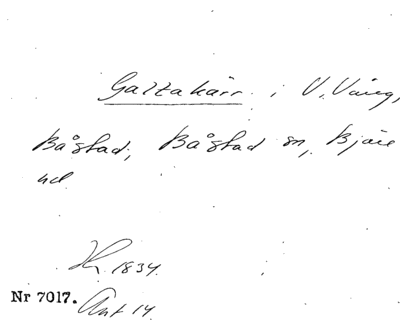 Galtakärr i V. Väng,
Båstad, Båstad sn, Bjäre
hd
Hr. 1834.
Nr 7017. Ant 14.